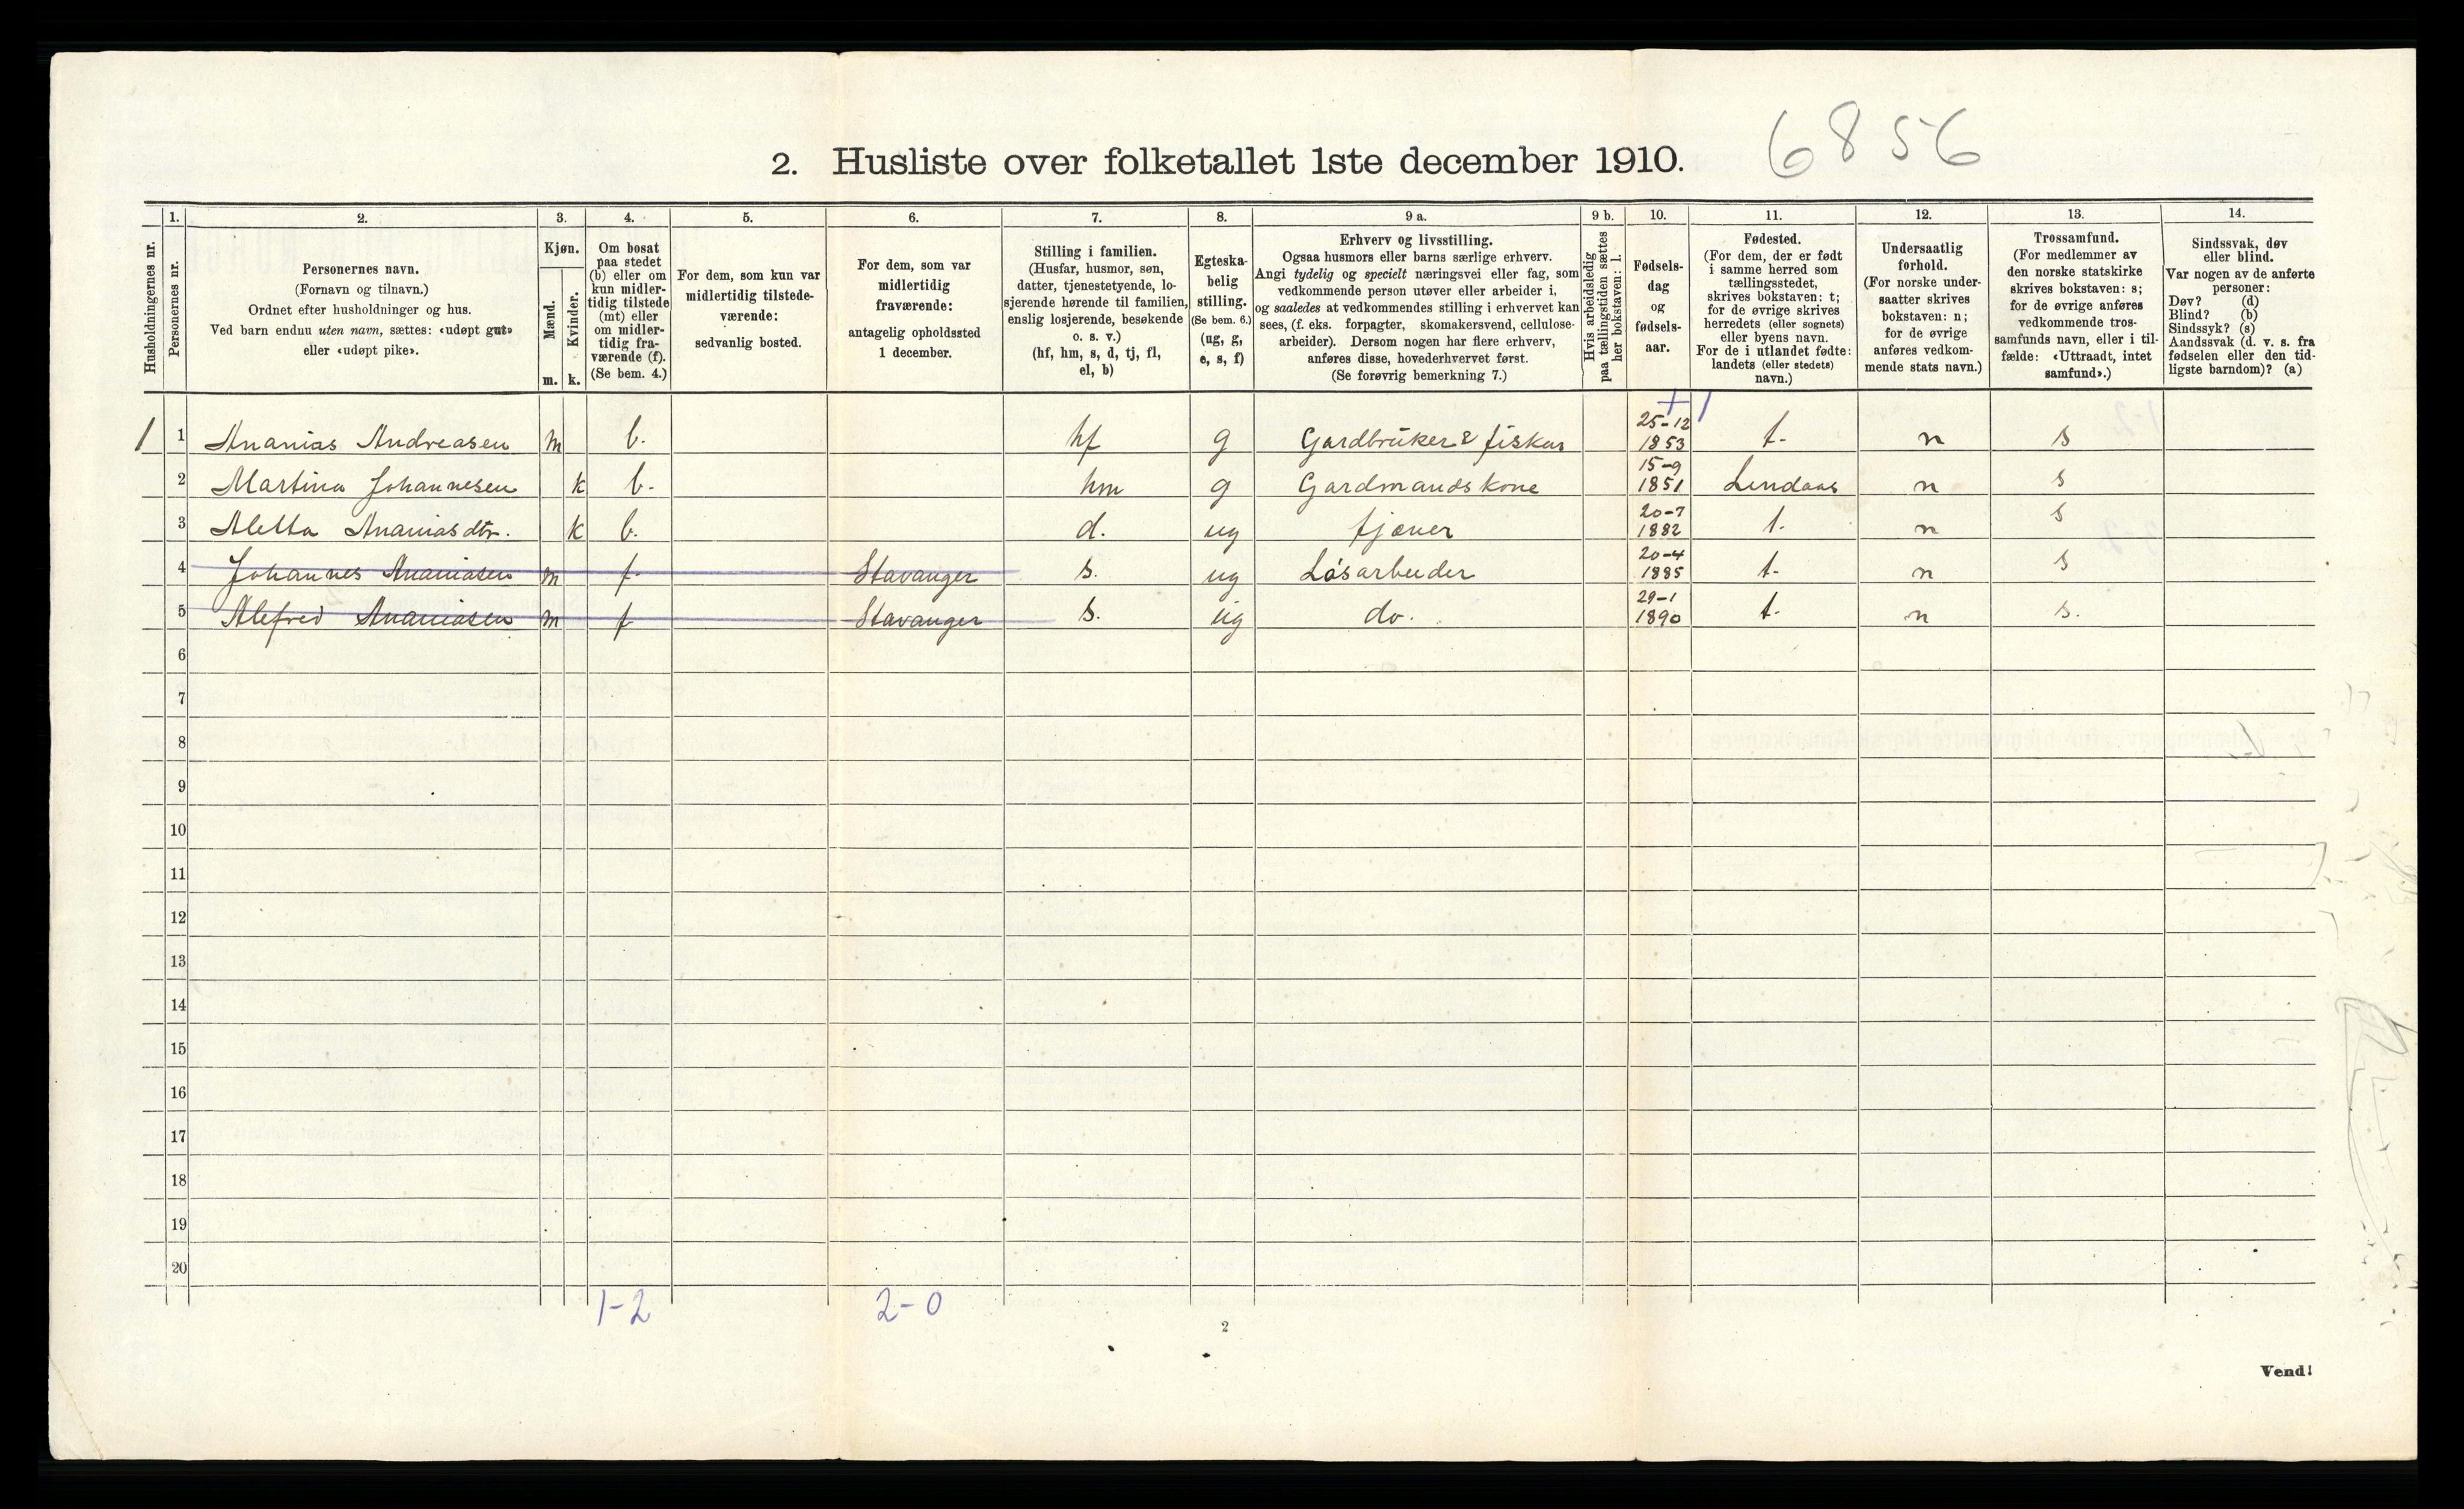 6856
2. Husliste over folketallet 1ste december 1910.
Husholdningernes nr.
1.
Personernes nr.
2.
Personernes navn.
(Fornavn og tilnavn.)
Ordnet efter husholdninger og hus.
Ved barn endnu uten navn, sættes: «udøpt gut»
eller «udøpt pike».
3.
Kjøn.
Mænd.
m.
Kvinder.
k.
4.
Om bosat
paa stedet
(b) eller om
kun midler-
tidig tilstede
(mt) eller
om midler-
tidig fra-
værende (f).
(Se bem. 4.)
5.
For dem, som kun var
midlertidig tilstede-
værende:
sedvanlig bosted.
6.
For dem, som var
midlertidig
fraværende:
antagelig opholdssted
1 december.
7.
Stilling i familien.
(Husfar, husmor, søn,
datter, tjenestetyende, lo-
sjerende hørende til familien,
enslig losjerende, besøkende
o. s. v.)
(hf, hm, s, d, tj, fl,
el, b)
8.
Egteska-
belig
stilling.
(Se bem. 6.)
(ug, g,
e, s, f)
9 a.
Erhverv og livsstilling.
Ogsaa husmors eller barns særlige erhverv.
Angi tydelig og specielt næringsvei eller fag, som
vedkommende person utøver eller arbeider i,
og saaledes at vedkommendes stilling i erhvervet kan
sees, (f. eks. forpagter, skomakersvend, cellulose-
arbeider). Dersom nogen har flere erhverv,
anføres disse, hovederhvervet først.
(Se forøvrig bemerkning 7.)
9 b.
Hvis arbeidsledig
paa tællingstiden sættes
her bokstaven: l.
10.
Fødsels-
dag
og
fødsels-
aar.
11.
Fødested.
(For dem, der er født
i samme herred som
tællingsstedet,
skrives bokstaven: t;
for de øvrige skrives
herredets (eller sognets)
eller byens navn.
For de i utlandet fødte:
landets (eller stedets)
navn.)
12.
Undersaatlig
forhold.
(For norske under-
saatter skrives
bokstaven: n;
for de øvrige
anføres vedkom-
mende stats navn.)
13.
Trossamfund.
(For medlemmer av
den norske statskirke
skrives bokstaven: s;
for de øvrige anføres
vedkommende tros-
samfunds navn, eller i til-
fælde: «Uttraadt, intet
samfund».)
14.
Sindssvak, døv
eller blind.
Var nogen av de anførte
personer:
Døv? (d)
Blind? (b)
Sindssyk? (s)
Aandssvak (d. v. s. fra
fødselen eller den tid-
ligste barndom)? (a)
1 1 Ananias Andreasen m b. hf g Gardbruker & fisker 25-12 1853 t. n s
2 Martina Johannesen k b. hm g Gardmandskone 15-9 1851 Lindaas n s
3 Aletta Ananiasdtr. k b. d. ug tjener 20-7 1882 t. n s
4 Johannes Ananiasen m f Stavanger s. ug Løsarbeider 20-4 1885 t. n s
5 Alefred Ananiasen m f Stavanger s. ug do. 29-1 1890 t. n s.
6
7
8
9
10
11
12
13
14
15
16
17
18
19
20
1-2 2-0
2
Vend!